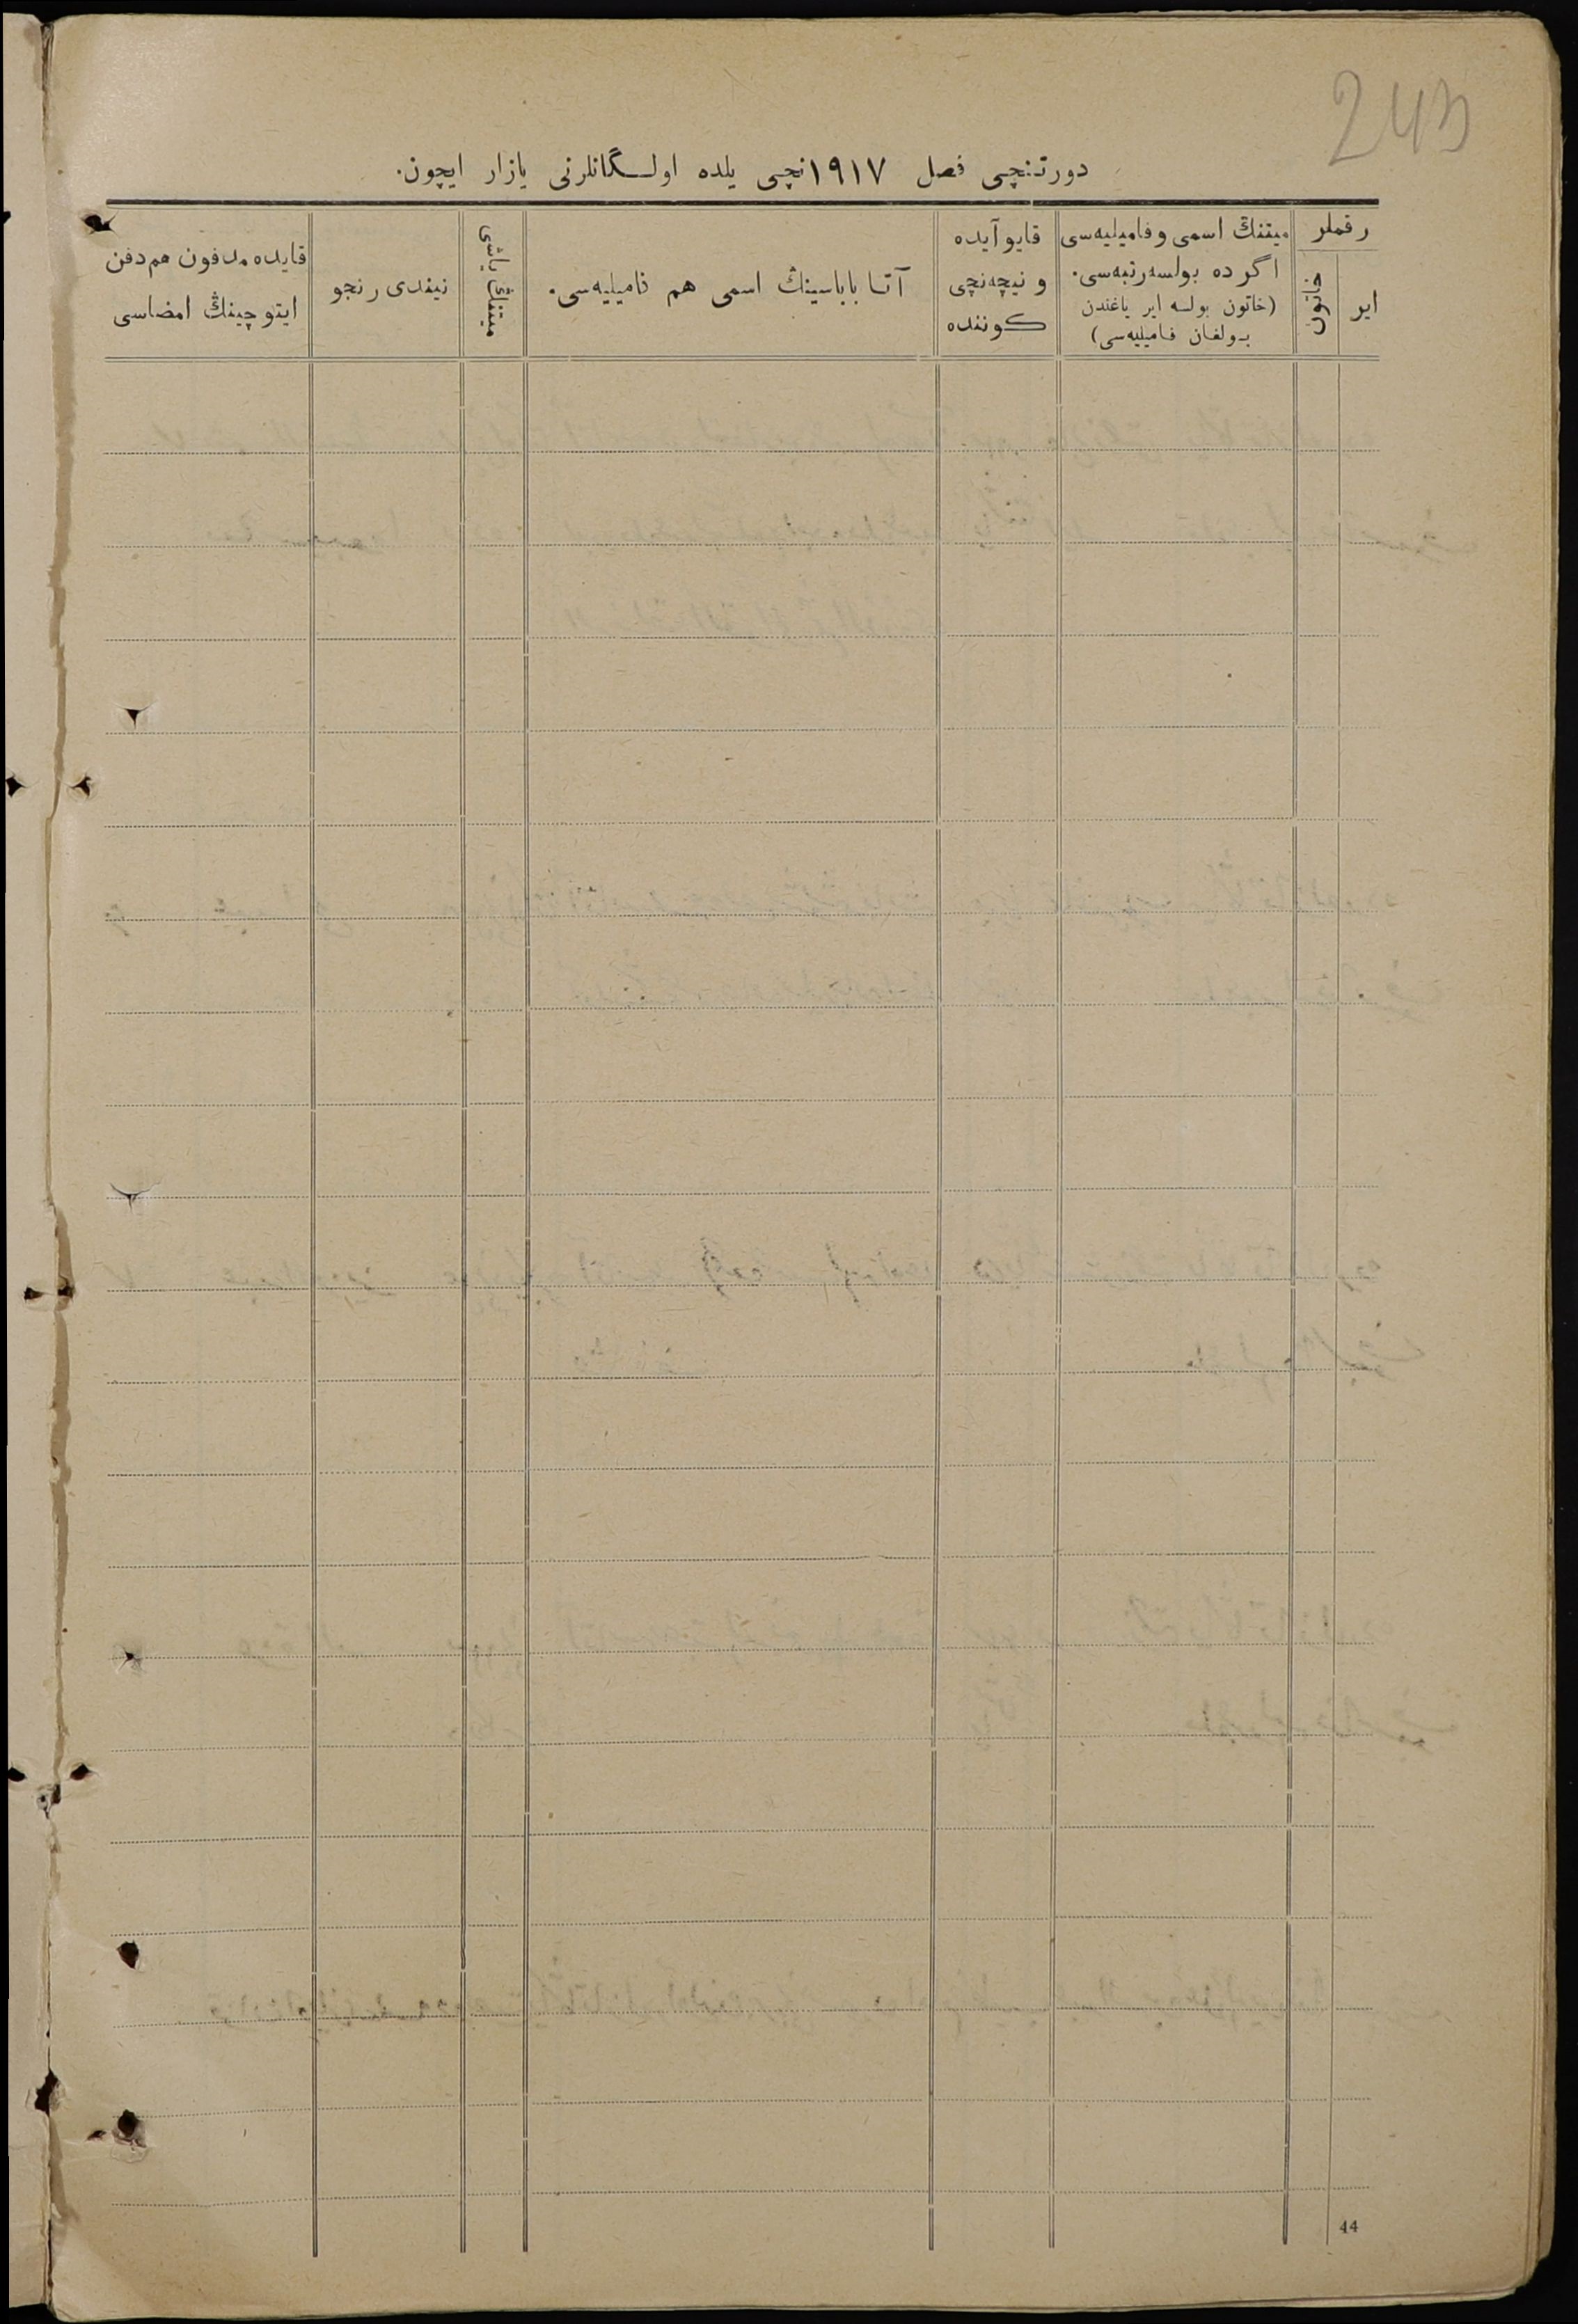 243
دورتنچی فصل ۱۹۱۷نچی یلده اولـگانلرنی یازار ایچون.
رقملر
ایر
خاتون
میتنڭ اسمی وفامیلیه‌سی
اگرده بولسه رتبه‌سی.
(خاتون بولسه ایر یاغندن
بولغان فامیلیه‌سی)
قایو آیده
و نیچه‌نچی
کوننده
آتا باباسینڭ اسمی هم فامیلیه‌سی.
میتنڭ یاشی
نیندی رنجو
قایده مدفون هم دفن
ایتوچینڭ امضاسی
44